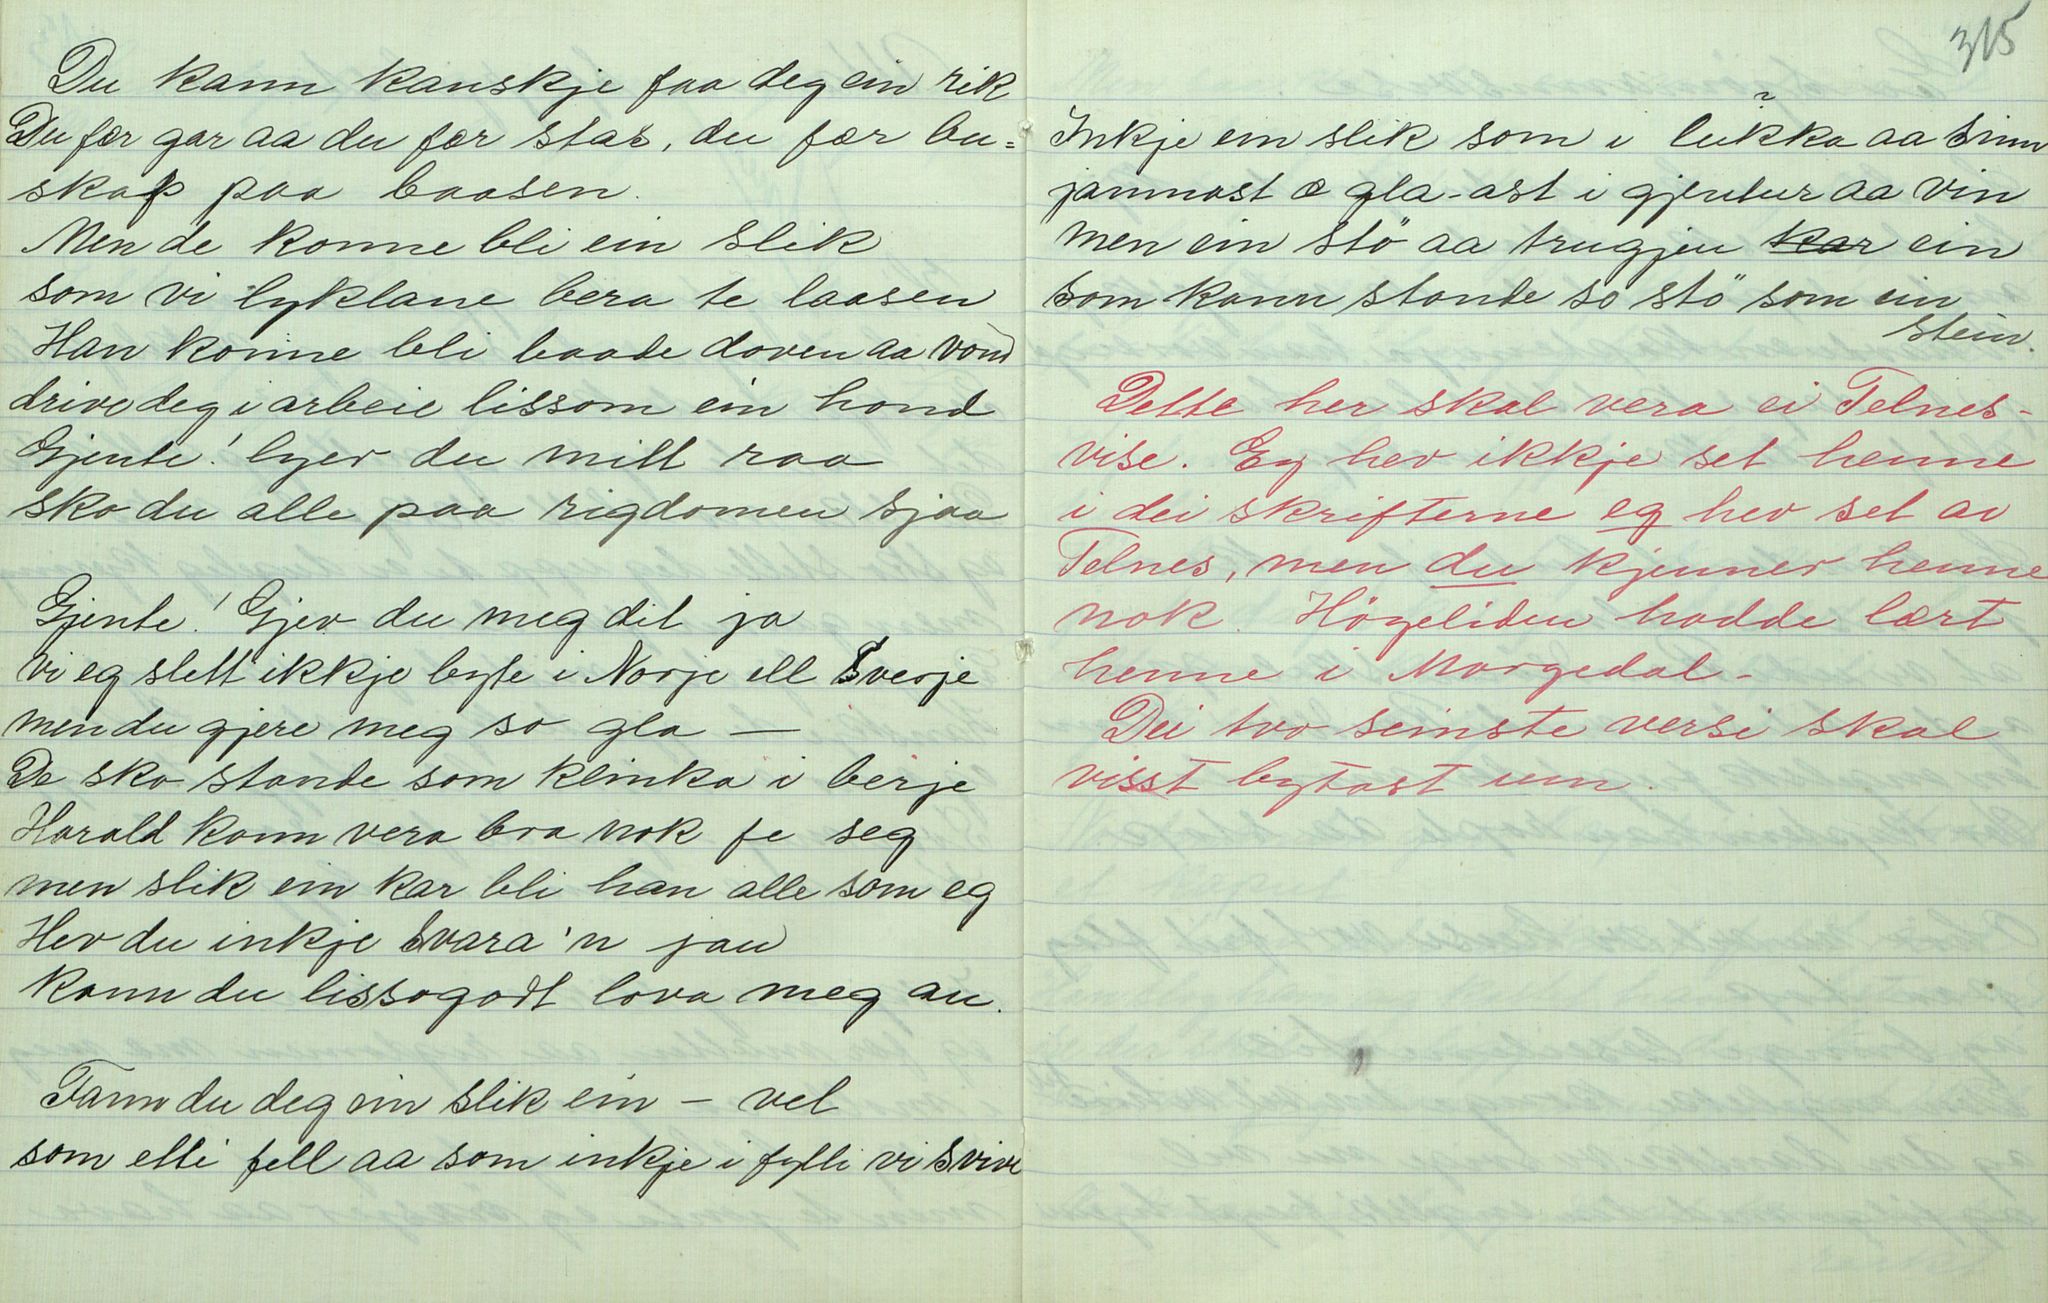 Du kann kanskje faa deg ein rik
Du fær gar aa du fær stas, du fær bu=
skap paa baasen.
Men de konne bli ein slik
som vi lyklane bera te laasen
Han konne bli baade doven aa vond
drive deg i arbeie lissom ein hond
Gjente! lyer du mitt raa
sko du alle paa rigdomen sjaa
Gjente! Gjev du meg dit ja
vi eg slett ikkje byte i Norje ell Sverje
men du gjere meg so gla —
De sko stande som klinka i berje
Harald kann vera bra nok fe seg
men slik ein kar bli han alle som eg
Hev du inkje svara'n jau
kann du lissogodt lova meg au.
Fann du deg ein slik ein – vel
som elti fell aa som inkje i fylli vi svive
315
Inkje ein slik som i lukka aa sinn
jamnast æ gla-ast i gjentur aa vin
men ein stö aa trugjen kar ein
som kann stande so stö som ein
stein.
Dette her skal vera ei Telnes-
vise. Eg hev ikkje set henne
i dei skrifterne eg hev set av
Telnes, men du kjenner henne
nok. Högeliden hadde lært
henne i Morgedal –
Dei tvo seinste versi skal
visst bytast um.